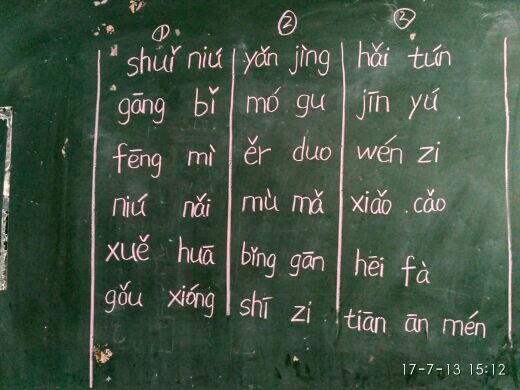 ① ② ③
shuǐ niú yǎn jìng hǎi tún
gāng bǐ mó gu jīn yú
fēng mì ěr duo wén zi
niú nǎi mù mǎ xiǎo cǎo
xuě huā bǐng gān hēi fà
gǒu xióng shī zi tiān ān mén
17-7-13 15:12